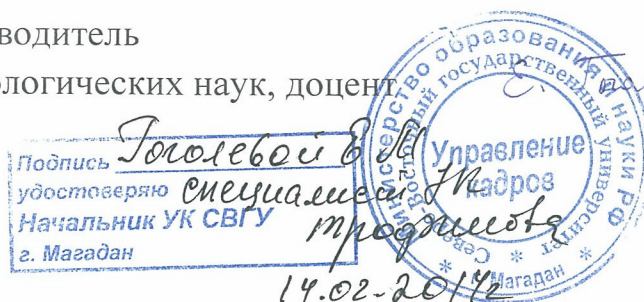 водитель
ологических наук, доцент
Подпись Гоголевой Е М
удостоверяю специалист УК
Начальник УК СВГУ Трофимова
г. Магадан
14.02.2017г
Министерство образования и науки РФ
Северо-Восточный государственный университет
Управление
кадров
* г. Магадан *